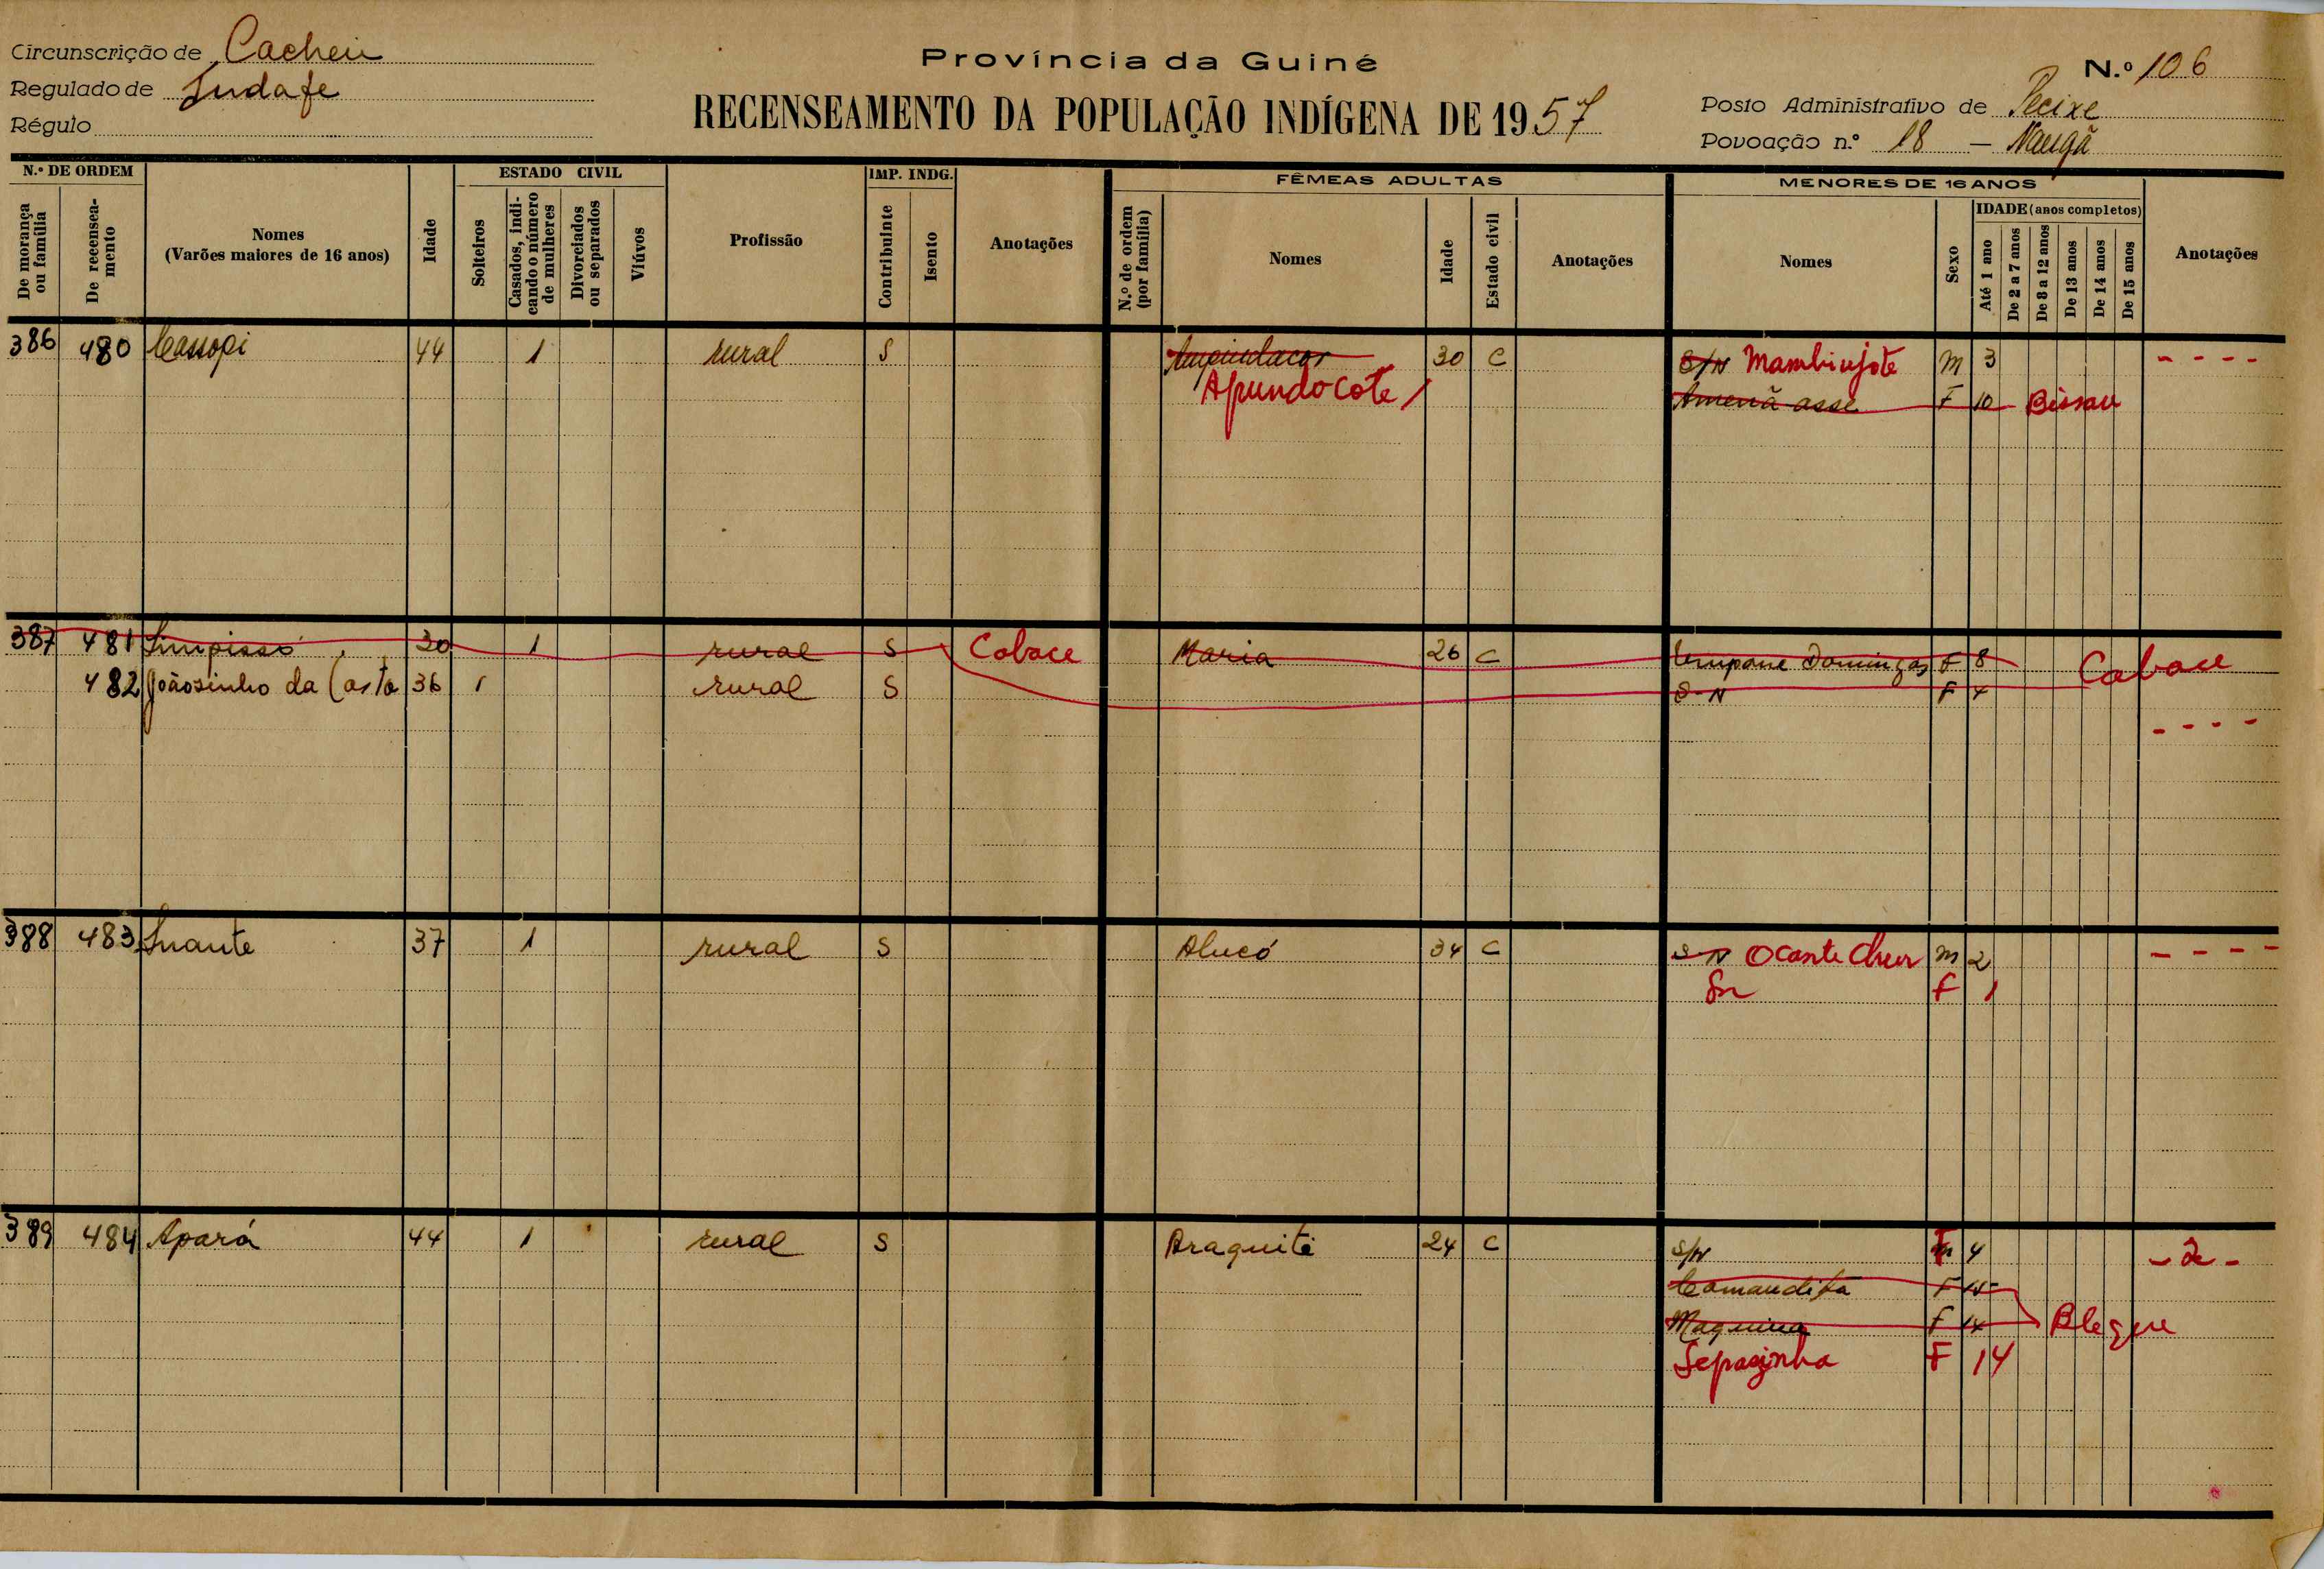 Circunscrição de Cacheu
Regulado de
Régulo
Província da Guiné
RECENSEAMENTO DA POPULAÇÃO INDÍGENA DE 1957
N.º 106
Posto Administrativo de Pecixe
Povoação n.º 18 —
N.º DE ORDEM
De morança ou família
De recenseamento
Nomes
(Varões maiores de 16 anos)
Idade
ESTADO CIVIL
Solteiros
Casados, indicando o número de mulheres
Divorciados ou separados
Viúvos
Profissão
IMP. INDG.
Contribuinte
Isento
Anotações
FÊMEAS ADULTAS
N.º de ordem (por família)
Nomes
Idade
Estado civil
Anotações
MENORES DE 16 ANOS
Nomes
Sexo
IDADE (anos completos)
Até 1 ano
De 2 a 7 anos
De 8 a 12 anos
De 13 anos
De 14 anos
De 15 anos
Anotações
386 480 Cassopi 44 1 rural S 30 C S/N Mambinjote M 3 - - - -
Apundocote F 10 Bissau
387 481 30 1 rural S Cabace Maria 26 C Domingas F 8 Cabace
482 Joãosinho da Costa 36 1 rural S S-N F 4
- - - -
388 483 37 1 rural S Alucó 34 C S-N Ocante M 2 - - - -
Sn F 1
389 484 Apará 44 1 rural S Araquite 24 C S/N F 4 - 2 -
Comandita F 15
Maquina F 14 Blegue
Sepasinha F 14